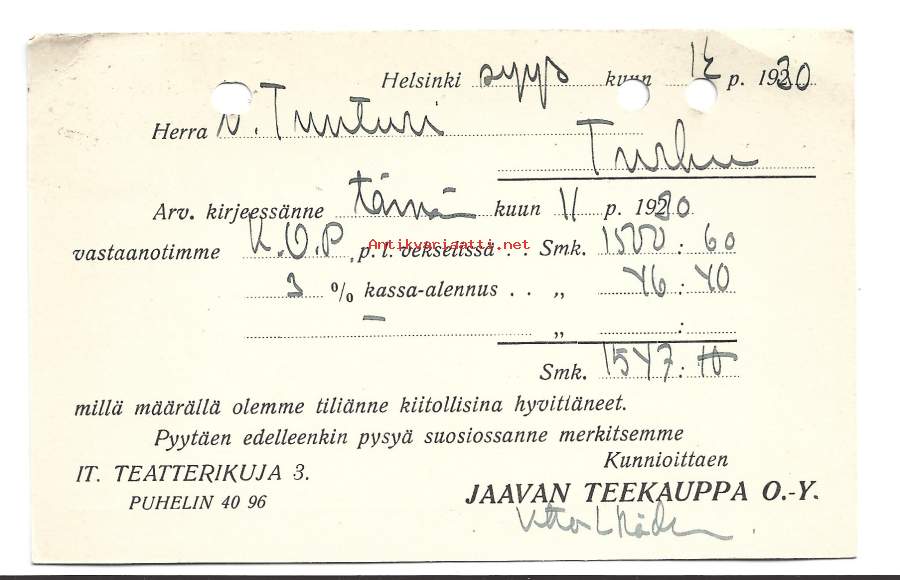 Helsinki syys kuun 12 p. 1930
Herra V. Tunturi
Turku
Arv. kirjeessänne tämä kuun 11 p. 1930
vastaanotimme K.O.P. p. t. vekselissä . . Smk. 1500 : 60
Antikvariaatti.net
3 % kassa-alennus . . „ 46 : 40
„ :
Smk. 1547 :
millä määrällä olemme tiliänne kiitollisina hyvittäneet.
Pyytäen edelleenkin pysyä suosiossanne merkitsemme
Kunnioittaen
IT. TEATTERIKUJA 3.
PUHELIN 40 96
JAAVAN TEEKAUPPA O.-Y.